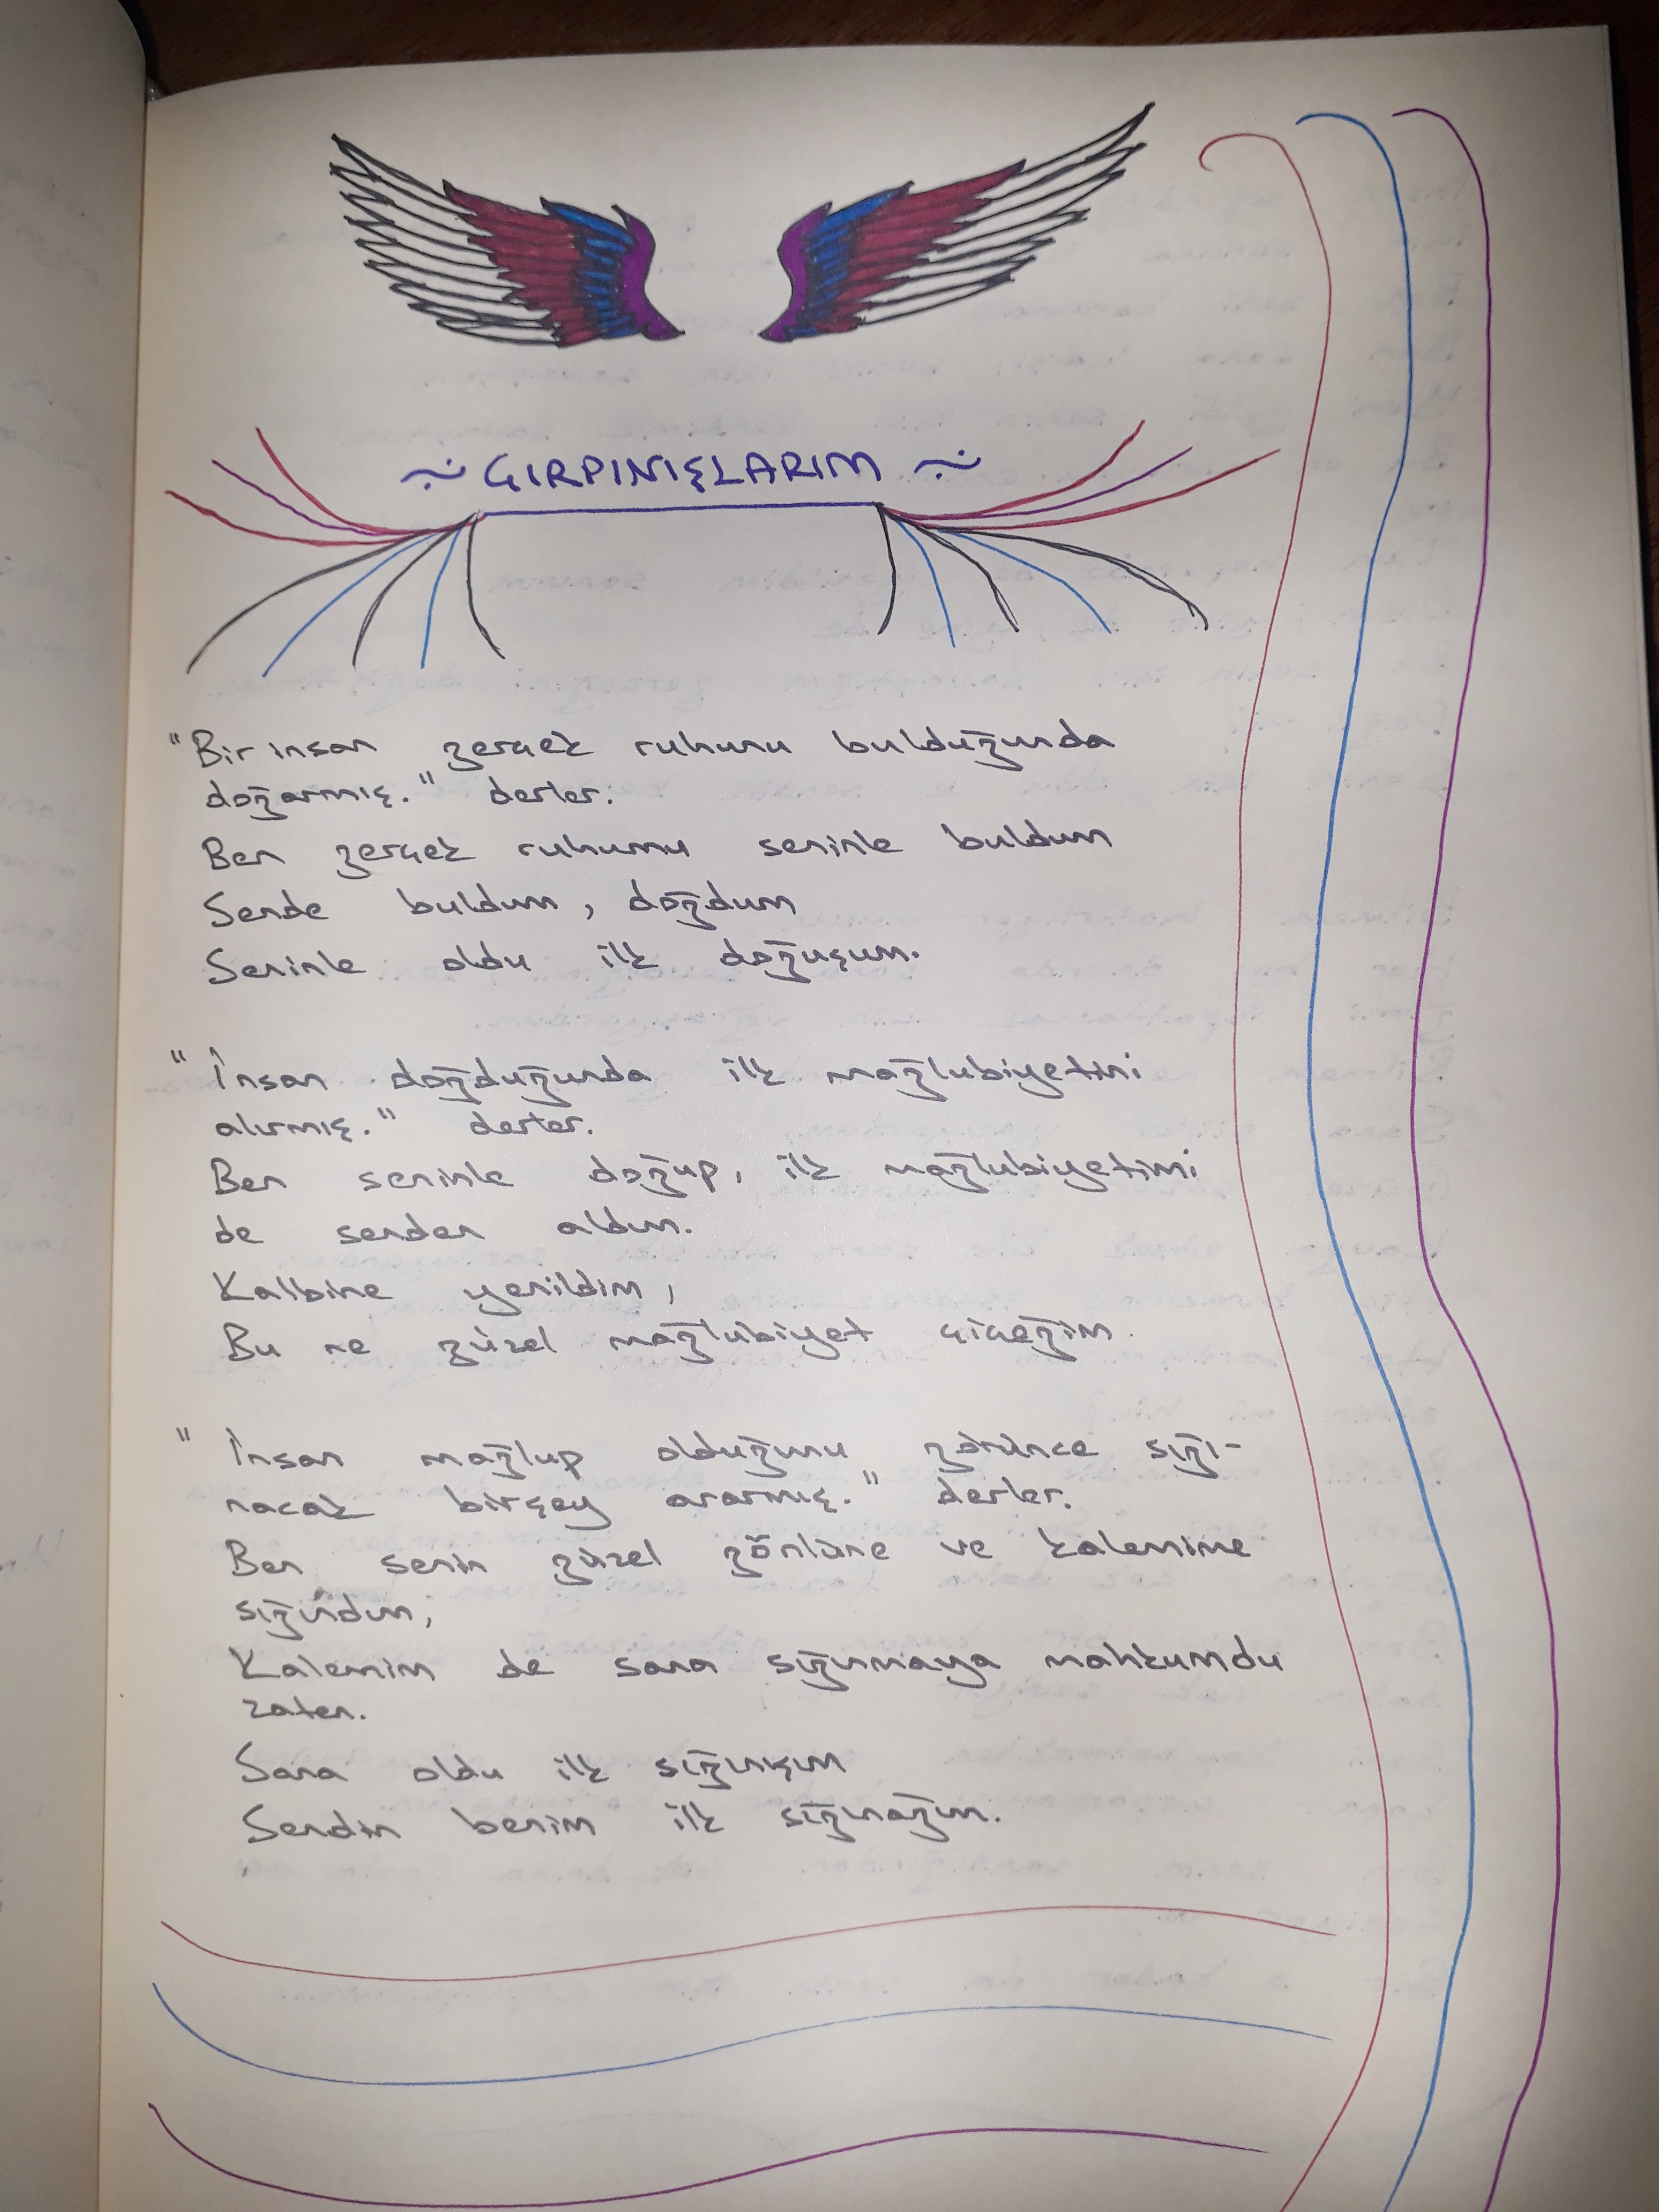 ~ ÇIRPINIŞLARIM ~
"Bir insan gerçek ruhunu bulduğunda
doğarmış." derler.
Ben gerçek ruhumu seninle buldum
Sende buldum, doğdum
Seninle oldu ilk doğuşum.
"İnsan doğduğunda ilk mağlubiyetini
alırmış." derler.
Ben seninle doğup, ilk mağlubiyetimi
de senden aldım.
Kalbine yenildim,
Bu ne güzel mağlubiyet çiçeğim.
"İnsan mağlup olduğunu görünce sığı-
nacak birşey ararmış." derler.
Ben senin güzel gönlüne ve kalemime
sığındım,
Kalemim de sana sığınmaya mahkumdu
zaten.
Sana oldu ilk sığınışım
Sendin benim ilk sığınağım.